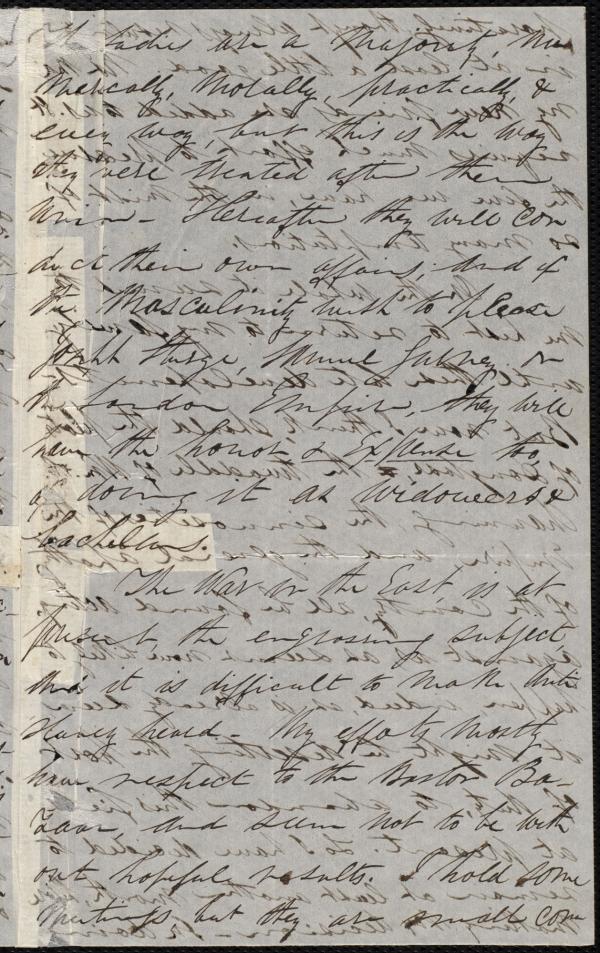 Ladies are a majority, nu
merically, morally, practically, &
every way, but this is the way
they were treated after their
union - Hereafter they will con
duct their own affairs, and if
the Masculinity wish to please
Joseph Sturge, Samuel Gurney or
the London Empire, they will
have the honor & Expense too,
of doing it as widowers &
bachellors.
The War in the East is at
present the engrossing subject,
and it is difficult to make Anti
Slavery heard - My efforts mostly
have respect to the Boston Ba-
zaar, and seem not to be with
out hopeful results. I hold some
meetings but they are small com